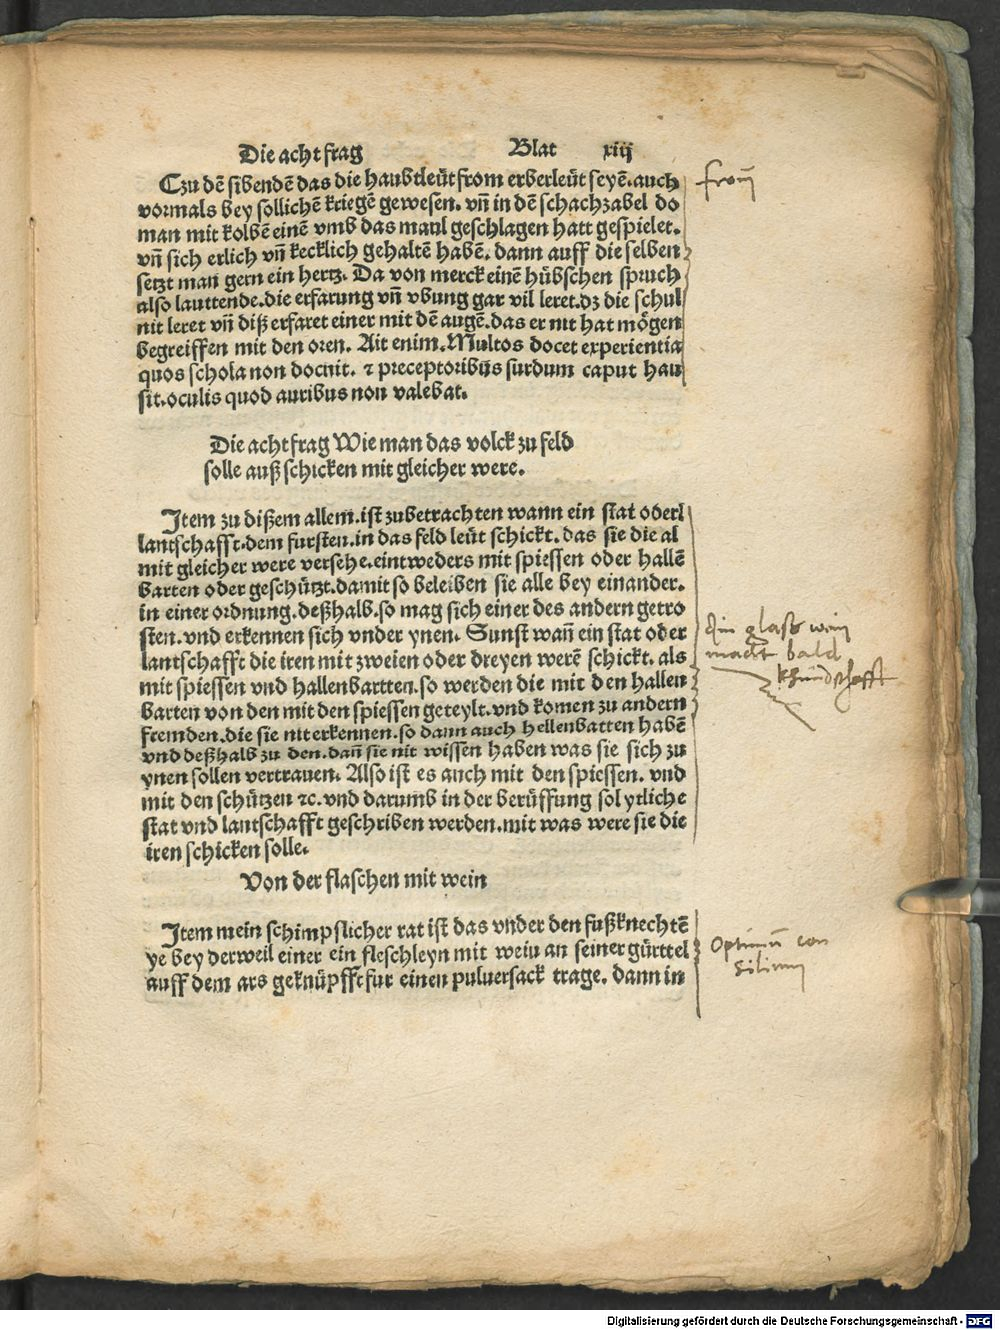 Die acht frag Blat xiij
Czu dē sibendē das die haubtleüt from erberleüt seyē. auch
vormals bey sollichē kriegē gewesen. vn̄ in dē schachzabel do
man mit kolbē einē vmb das maul geschlagen hatt gespielet.
vn̄ sich erlich vn̄ kecklich gehaltē habē. dann auff die selben
setzt man gern ein hertz. Da von merck einē hübschen spruch
also lauttende. die erfarung vn̄ vbung gar vil leret. dz die schul
nit leret vn̄ diß erfaret einer mit dē augē. das er nit hat mögen
begreiffen mit den oren. Ait enim. Multos docet experientia
quos schola non docuit. ⁊ preceptoribus surdum caput hau
sit. oculis quod auribus non valebat.
Die acht frag Wie man das volck zu feld
solle auß schicken mit gleicher were.
Item zu dißem allem. ist zubetrachten wann ein stat oderl
lantschafft. dem fursten. in das feld leüt schickt. das sie die al
mit gleicher were versehe. eintweders mit spiessen oder hallē
barten oder geschützt. damit so beleiben sie alle bey einander.
in einer ordnung. deßhalb. so mag sich einer des andern getro
sten. vnd erkennen sich vnder ynen. Sunst wan̄ ein stat oder
lantschafft die iren mit zweien oder dreyen werē schickt. als
mit spiessen vnd hallenbartten. so werden die mit den hallen
barten von den mit den spiessen geteylt. vnd komen zu andern
fremden. die sie nit erkennen. so dann auch hellenbatten habē
vnd deßhalb zu den. dan̄ sie nit wissen haben was sie sich zu
ynen sollen vertrauen. Also ist es auch mit den spiessen. vnd
mit den schützen ⁊c. vnd darumb in der berüffung sol ytliche
stat vnd lantschafft geschriben werden. mit was were sie die
iren schicken solle.
Von der flaschen mit wein
Item mein schimpslicher rat ist das vnder den fußknechtē
ye bey derweil einer ein fleschleyn mit weiu an seiner gürttel
auff dem ars geknüpfft fur einen puluersack trage. dann in
from̄
Ein glass win
macht bald
khündschafft
Optimū con
silium
Digitalisierung gefördert durch die Deutsche Forschungsgemeinschaft - DFG